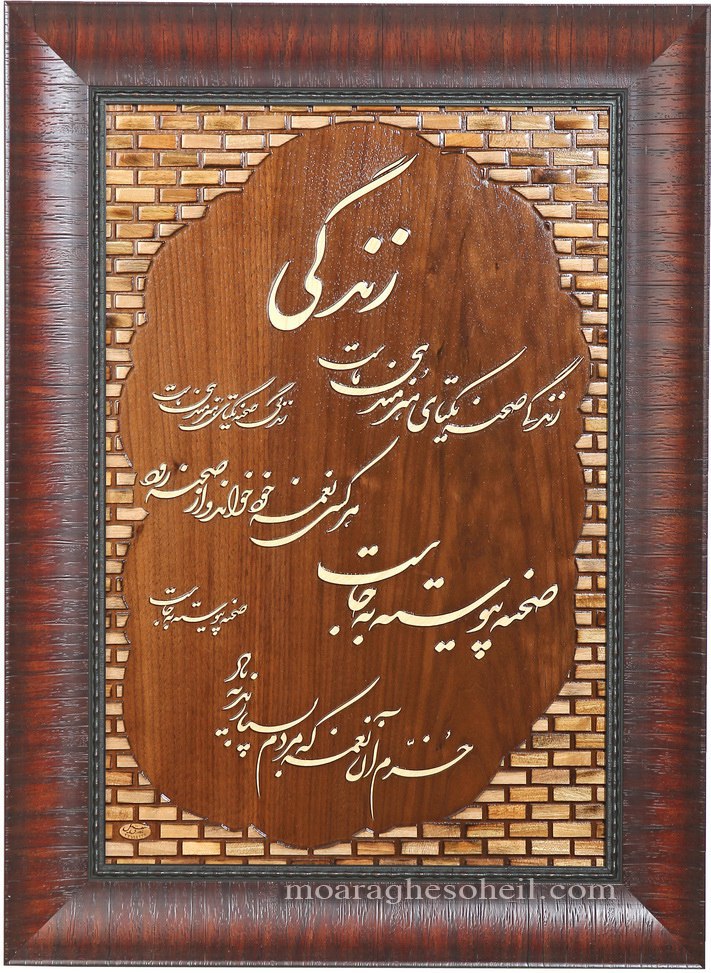 زندگی
زندگی صحنه یکتای هنرمندی ماست
زندگی صحنه یکتای هنرمندی ماست
هر کسی نغمه خود خواند و از صحنه رود
صحنه پیوسته به جاست
صحنه پیوسته به جاست
خرّم آن نغمه که مردم بسپارند به یاد
moaraghesoheil.com